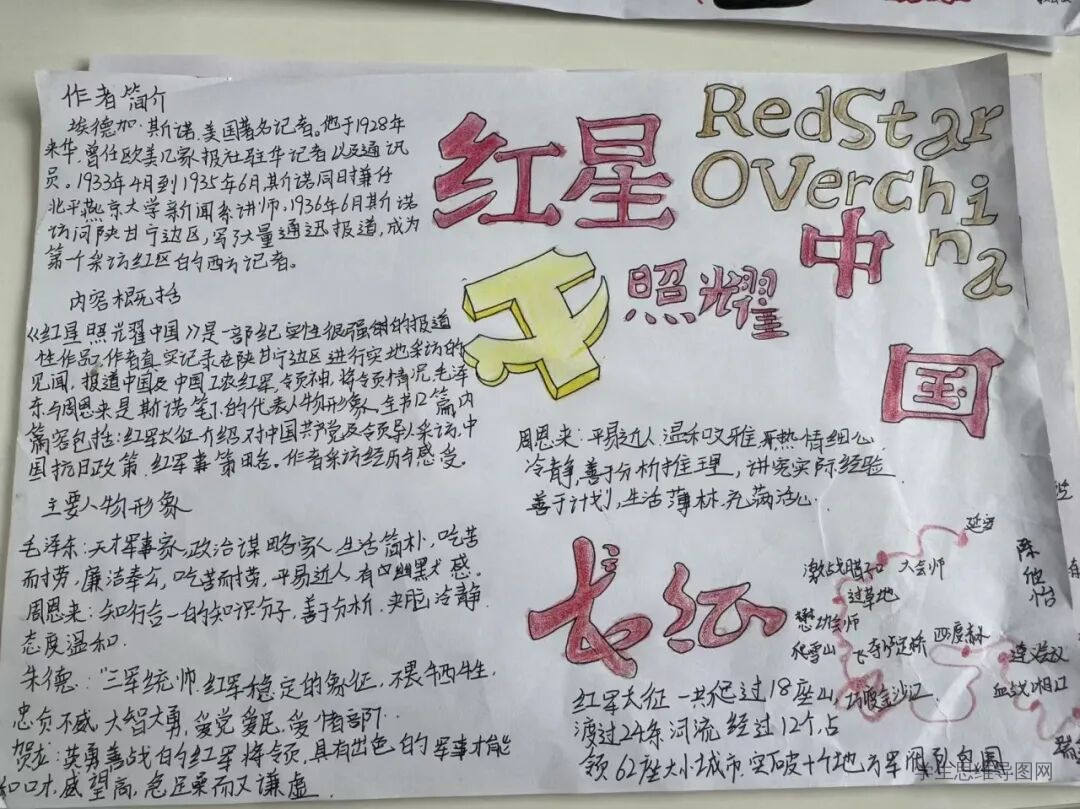 作者简介
埃德加·斯诺,美国著名记者。他于1928年
来华,曾任欧美几家报社驻华记者以及通讯
员。1933年4月到1935年6月,斯诺同时兼任
北平燕京大学新闻系讲师。1936年6月斯诺
访问陕甘宁边区,写了大量通迅报道,成为
第一个采访红区的西方记者。
内容概括
《红星照耀中国》是一部纪实性很强的报道
性作品,作者真实记录在陕甘宁边区进行实地采访的
见闻,报道中国及中国工农红星,领神,将领情况,毛泽
东与周恩来是斯诺笔下的代表人物形象。全书12篇,内
篇容包括:红军长征介绍,对中国共产党及领导人采访,中
国抗日政策,红军事策略。作者采访经历与感受。
主要人物形象
毛泽东:天才军事家,政治谋略家,生活简朴,吃苦
而劳,廉洁奉公,吃苦而耐劳,平易近人,有幽默感。
周恩来:知行合一的知识分子,善于分析,头脑冷静
态度温和.
朱德:三军统帅,红军稳定的象征,不畏牺牲,
忠贞不
大智大勇,爱党爱民,爱惜部下.
贺龙:英勇善战的红军将领,具有出色的军事才能
和口才,威望高,急足果而又谦虚.
红星
照耀
中
国
RedStar
OVerchina
周恩来:平易近人,温和文雅,
热情细心
冷静,善于分析推理,讲究实际经验
善于计划,生活
充满活心.
长征
延安
大会师
激战腊子口
过草地
懋功会师
爬雪山
飞夺泸定桥
四度赤水
巧渡金沙江
遵义会议
血战湘江
瑞
陈
怡
红军长征一共爬过18座山,
渡过24条河流,经过12个占
领62座大小城市,突破十个地方军阀
包围
学生思维导图网